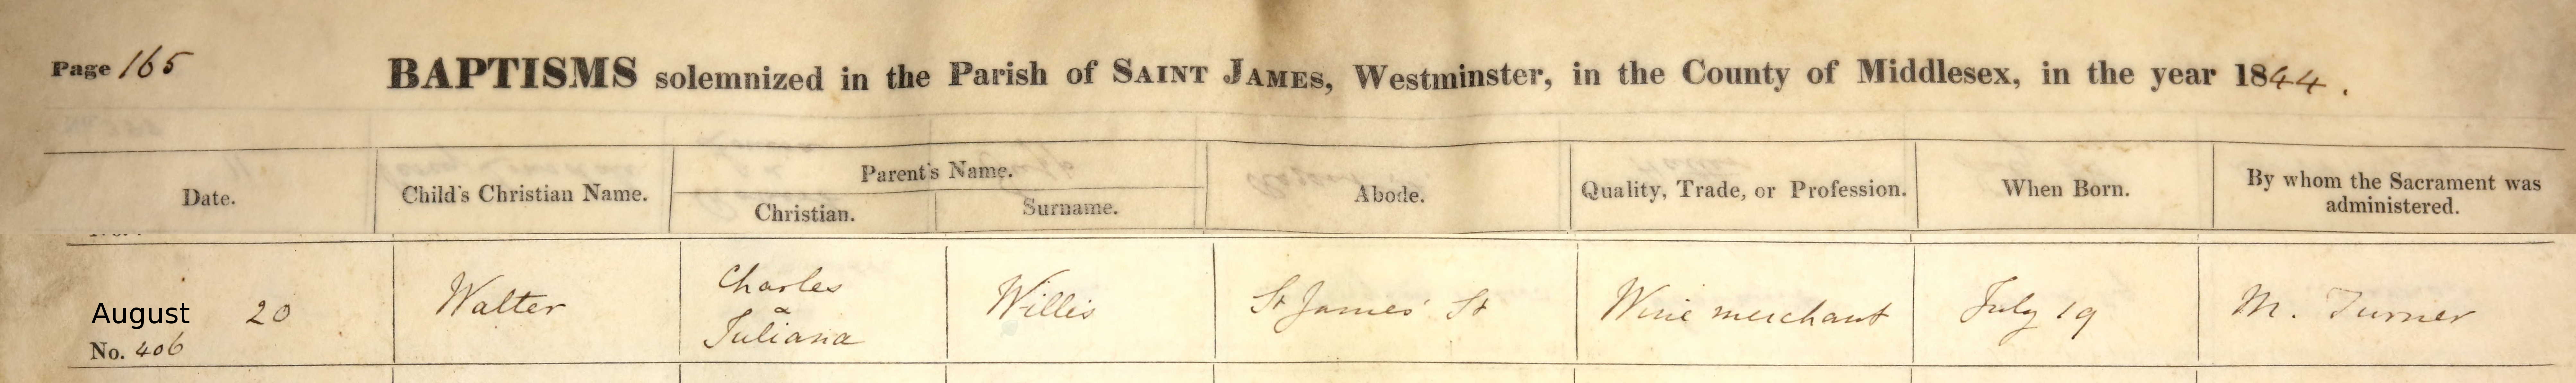 Page 165
BAPTISMS solemnized in the Parish of SAINT JAMES, Westminster, in the County of Middlesex, in the year 1844.
Date.
Child's Christian Name.
Parent's Name.
Christian.
Surname.
Abode.
Quality, Trade, or Profession.
When Born.
By whom the Sacrament was
administered.
August 20
No. 406
Walter
Charles
&
Juliana
Willis
St James' St
Wine merchant
July 19
M. Turner